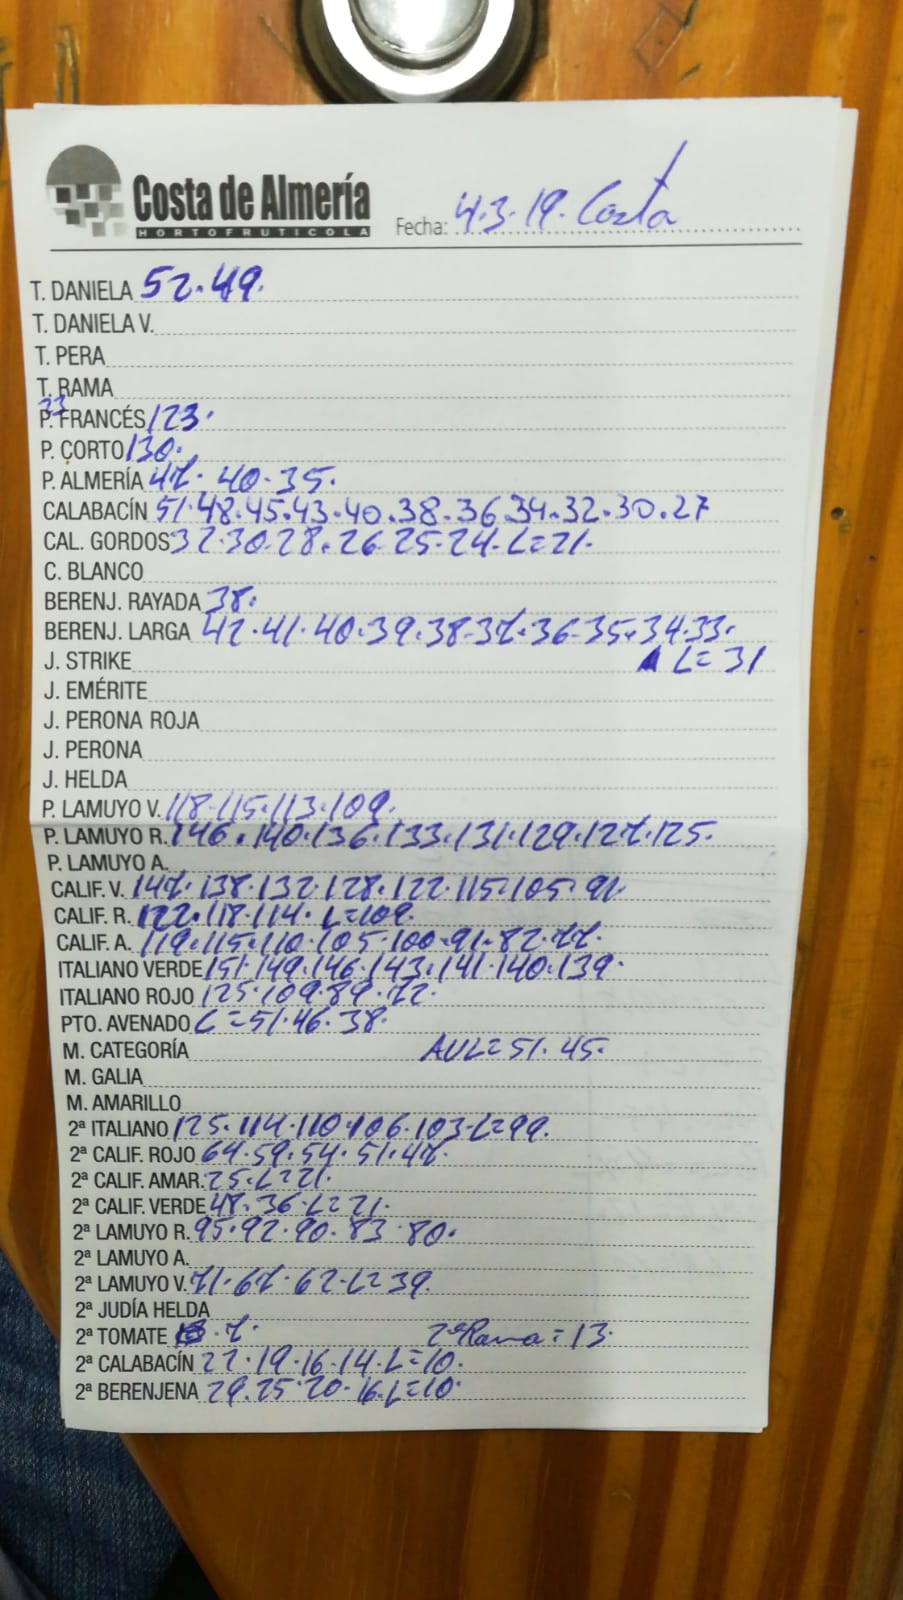 Costa de Almería
HORTOFRUTICOLA
Fecha: 4.3.19. Costa
T. DANIELA 52.49.
T. DANIELA V.
T. PERA
T. RAMA
33
P. FRANCÉS 123.
P. CORTO 130.
P. ALMERÍA 47. 40.35.
CALABACÍN 51.48.45.43.40.38.36.34.32.30.27
CAL. GORDOS 32.30.28.26.25.24.L=21.
C. BLANCO
BERENJ. RAYADA 38.
BERENJ. LARGA 42.41.40.39.38.37.36.35.34.33.
J. STRIKE L=31
J. EMÉRITE
J. PERONA ROJA
J. PERONA
J. HELDA
P. LAMUYO V. 118.115.113.109.
P. LAMUYO R. 146.140.136.133.131.129.127.125.
P. LAMUYO A.
CALIF. V. 147.138.132.128.122.115.105.91.
CALIF. R. 122.118.114. L=109.
CALIF. A. 119.115.110.105.100.91.82.77.
ITALIANO VERDE 151.149.146.143.141.140.139.
ITALIANO ROJO 125.109.89.72.
PTO. AVENADO L=51.46.38.
M. CATEGORÍA AUL=51.45.
M. GALIA
M. AMARILLO
2ª ITALIANO 125.114.110.106.103.L=99.
2ª CALIF. ROJO 64.59.54.51.47.
2ª CALIF. AMAR. 25.L=21.
2ª CALIF. VERDE 48.36.L=21.
2ª LAMUYO R. 95.92.90.83.80.
2ª LAMUYO A.
2ª LAMUYO V. 71.67.62.L=39.
2ª JUDÍA HELDA
2ª TOMATE 7. 2ª Rama=13.
2ª CALABACÍN 22.19.16.14.L=10.
2ª BERENJENA 29.25.20.16.L=10.